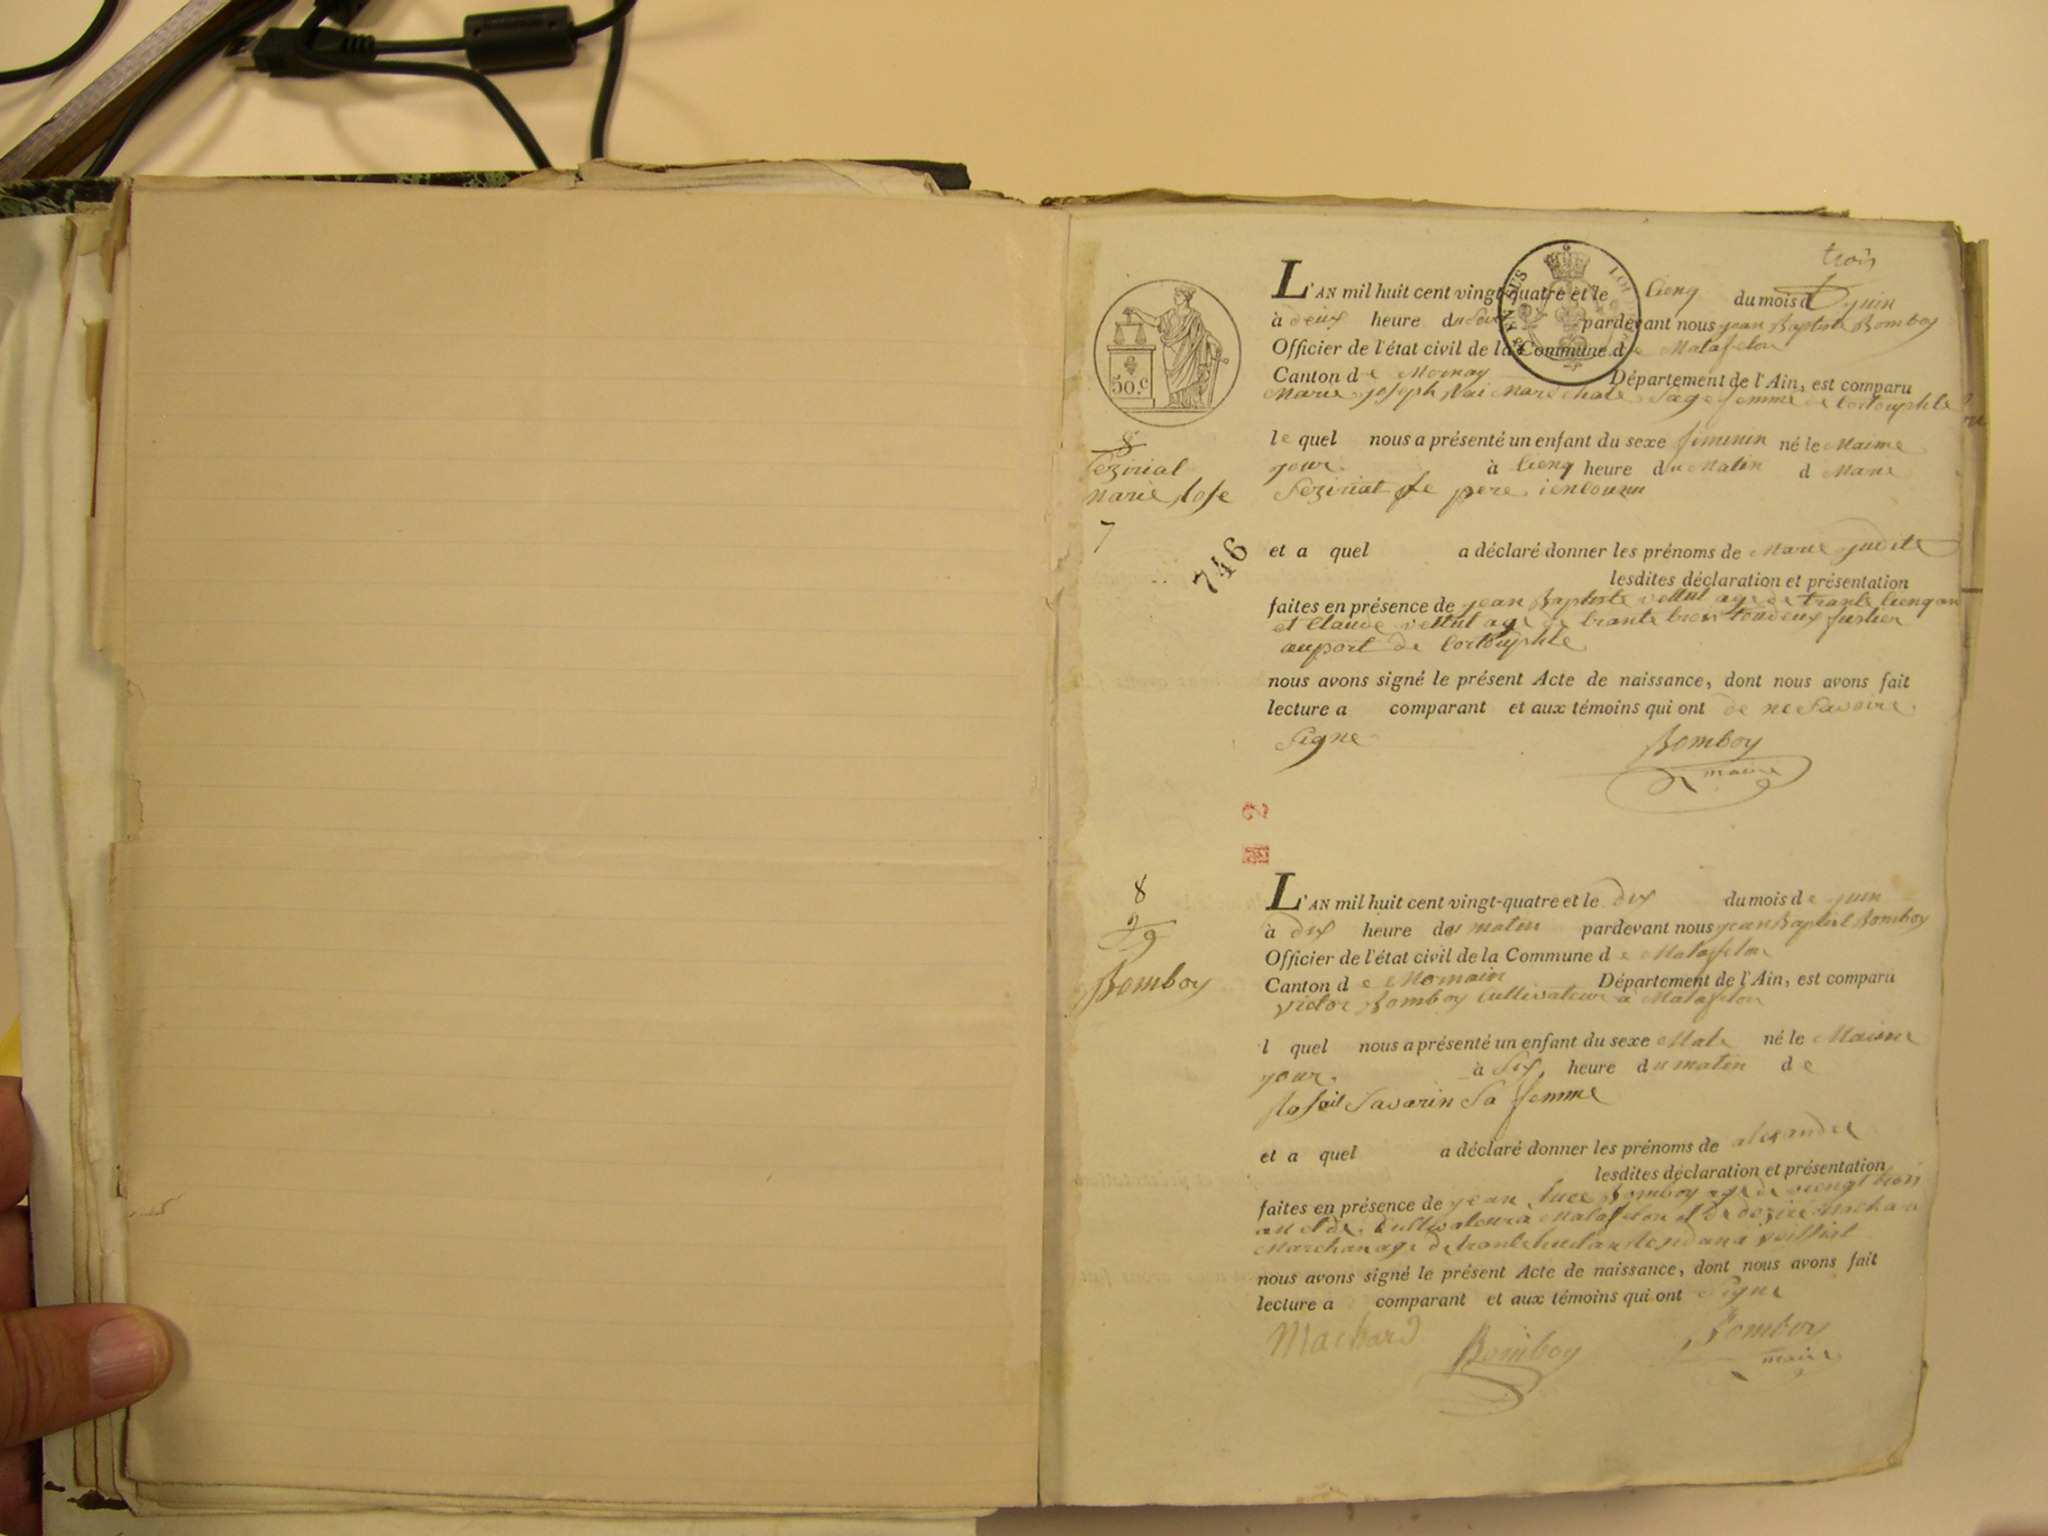 trois
L'AN mil huit cent vingt-quatre et le cienq du mois de juin
à deux heure du soir pardevant nous jean Baptiste Bomboy
Officier de l'état civil de la Commune de Matafelon
Canton de Mornay Département de l'Ain, est comparu
Marie joseph Maréchale Sage femme de
50.c
le quel nous a présenté un enfant du sexe feminin né le Maime
jour à cienq heure du Matin d Marie
Seziriat pere
8
Seziriat
Marie
7
746
et a quel a déclaré donner les prénoms de Marie judite
lesdites déclaration et présentation
faites en présence de jean Baptiste age de trante cienq an
et Claude age de trante trois toudeux
auport de
nous avons signé le présent Acte de naissance, dont nous avons fait
lecture a comparant et aux témoins qui ont de ne savoire
signe
Bomboy
maire
2
8
9
Bomboy
L'AN mil huit cent vingt-quatre et le dix du mois de juin
à dix heure du matin pardevant nous jean Baptist Bomboy
Officier de l'état civil de la Commune de Matafelon
Canton de Mornain Département de l'Ain, est comparu
victor Bomboy Cultivateur a Matafelon
l quel nous a présenté un enfant du sexe Male né le Maime
jour à six heure du matin de
Savarin Sa femme
et a quel a déclaré donner les prénoms de alexandre
lesdites déclaration et présentation
faites en présence de jean Luce Bomboy age de viengt trois
an et de Cultivateur à Matafelon et de
Marchan age de trante huit an
nous avons signé le présent Acte de naissance, dont nous avons fait
lecture a comparant et aux témoins qui ont signe
Machard Bomboy Bomboy
maire